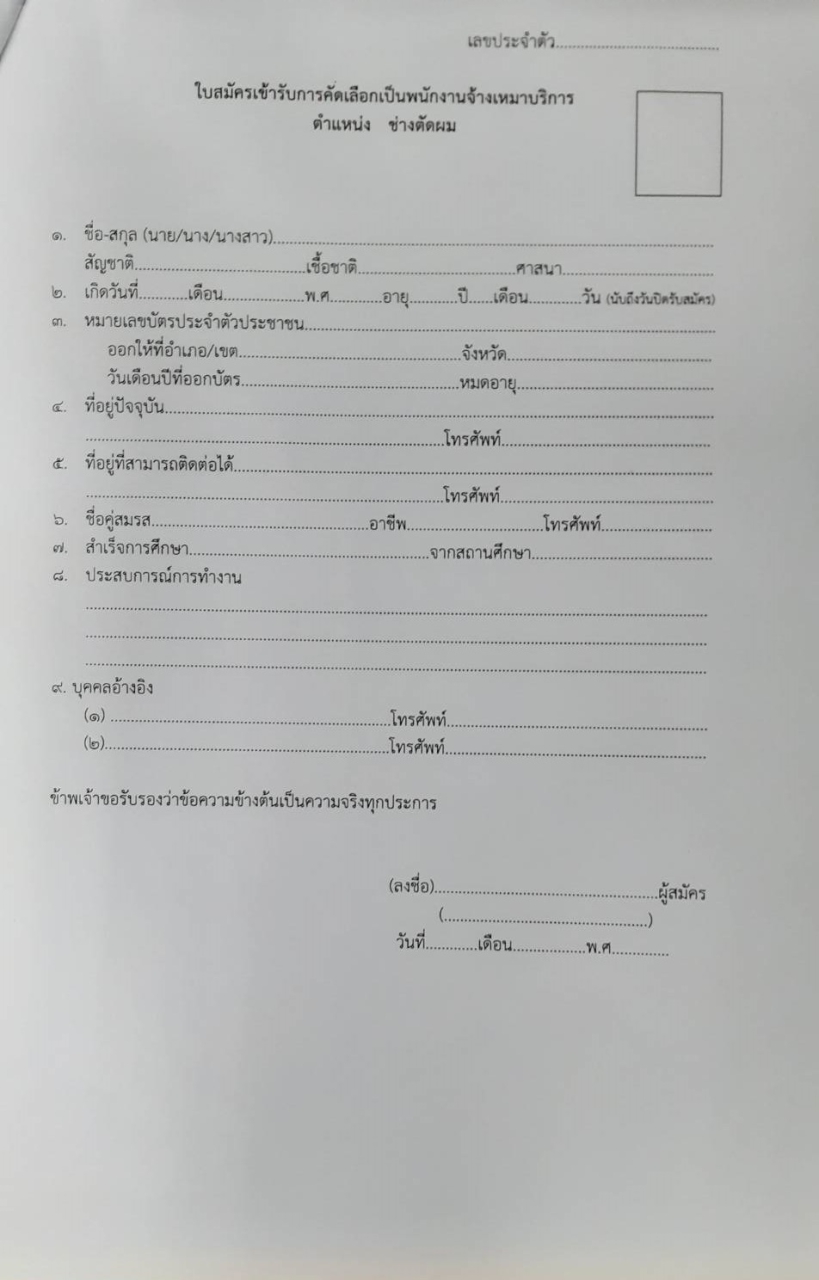 เลขประจำตัว........................................
ใบสมัครเข้ารับการคัดเลือกเป็นพนักงานจ้างเหมาบริการ
ตำแหน่ง ช่างตัดผม
๑. ชื่อ-สกุล (นาย/นาง/นางสาว)........................................
สัญชาติ....................เชื้อชาติ....................ศาสนา....................
๒. เกิดวันที่............เดือน....................พ.ศ.............อายุ............ปี......เดือน.............วัน (นับถึงวันปิดรับสมัคร)
๓. หมายเลขบัตรประจำตัวประชาชน........................................
ออกให้ที่อำเภอ/เขต........................................จังหวัด........................................
วันเดือนปีที่ออกบัตร........................................หมดอายุ........................................
๔. ที่อยู่ปัจจุบัน........................................
........................................โทรศัพท์........................................
๕. ที่อยู่ที่สามารถติดต่อได้........................................
........................................โทรศัพท์........................................
๖. ชื่อคู่สมรส........................................อาชีพ..............................โทรศัพท์..........................
๗. สำเร็จการศึกษา........................................จากสถานศึกษา........................................
๘. ประสบการณ์การทำงาน
........................................
........................................
........................................
๙. บุคคลอ้างอิง
(๑) ........................................โทรศัพท์........................................
(๒)........................................โทรศัพท์........................................
ข้าพเจ้าขอรับรองว่าข้อความข้างต้นเป็นความจริงทุกประการ
(ลงชื่อ)........................................ผู้สมัคร
(........................................)
วันที่.............เดือน..................พ.ศ..............